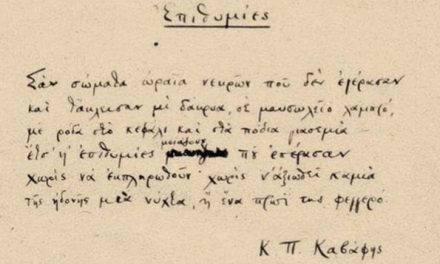 Επιθυμίες
Σάν σώματα ωραία νεκρών που δεν εγέρασαν
και τάκλεισαν, με δάκρυα, σε μαυσωλείο λαμπρό,
με ρόδα στο κεφάλι και στα πόδια γιασεμιά —
έτσ' η επιθυμίες μοιάζουν που επέρασαν
χωρίς να εκπληρωθούν· χωρίς ν' αξιωθεί καμιά
της ηδονής μια νύχτα, ή ένα πρωί της φεγγερό.
Κ. Π. Καβάφης